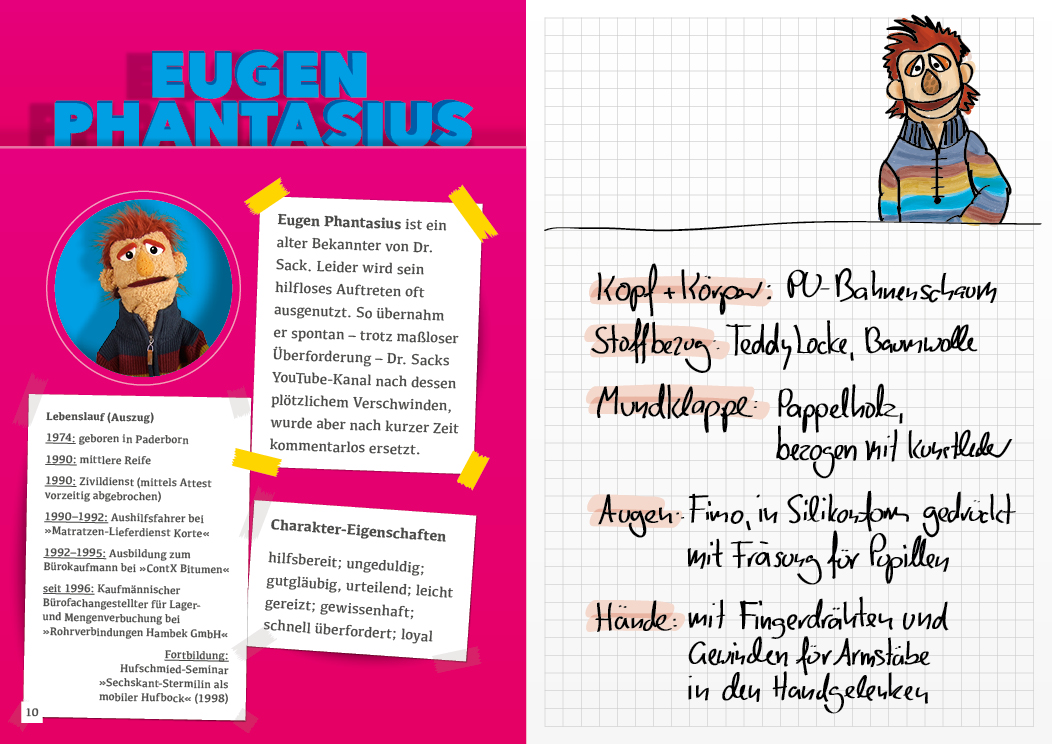 EUGEN
PHANTASIUS
Eugen Phantasius ist ein
alter Bekannter von Dr.
Sack. Leider wird sein
hilfloses Auftreten oft
ausgenutzt. So übernahm
er spontan – trotz maßloser
Überforderung – Dr. Sacks
YouTube-Kanal nach dessen
plötzlichem Verschwinden,
wurde aber nach kurzer Zeit
kommentarlos ersetzt.
Lebenslauf (Auszug)
1974: geboren in Paderborn
1990: mittlere Reife
1990: Zivildienst (mittels Attest
vorzeitig abgebrochen)
1990–1992: Aushilfsfahrer bei
»Matratzen-Lieferdienst Korte«
1992–1995: Ausbildung zum
Bürokaufmann bei »ContX Bitumen«
seit 1996: Kaufmännischer
Bürofachangestellter für Lager-
und Mengenverbuchung bei
»Rohrverbindungen Hambek GmbH«
Fortbildung:
Hufschmied-Seminar
»Sechskant-Stermilin als
mobiler Hufbock« (1998)
Charakter-Eigenschaften
hilfsbereit; ungeduldig;
gutgläubig, urteilend; leicht
gereizt; gewissenhaft;
schnell überfordert; loyal
10
Kopf + Körper: PU-Bahnenschaum
Stoffbezug: Teddy Locke, Baumwolle
Mundklappe: Pappelholz,
bezogen mit Kunstleder
Augen: Fimo, in Silikonform gedrückt
mit Fräsung für Pupillen
Hände: mit Fingerdrähten und
Gewinden für Armstäbe
in den Handgelenken